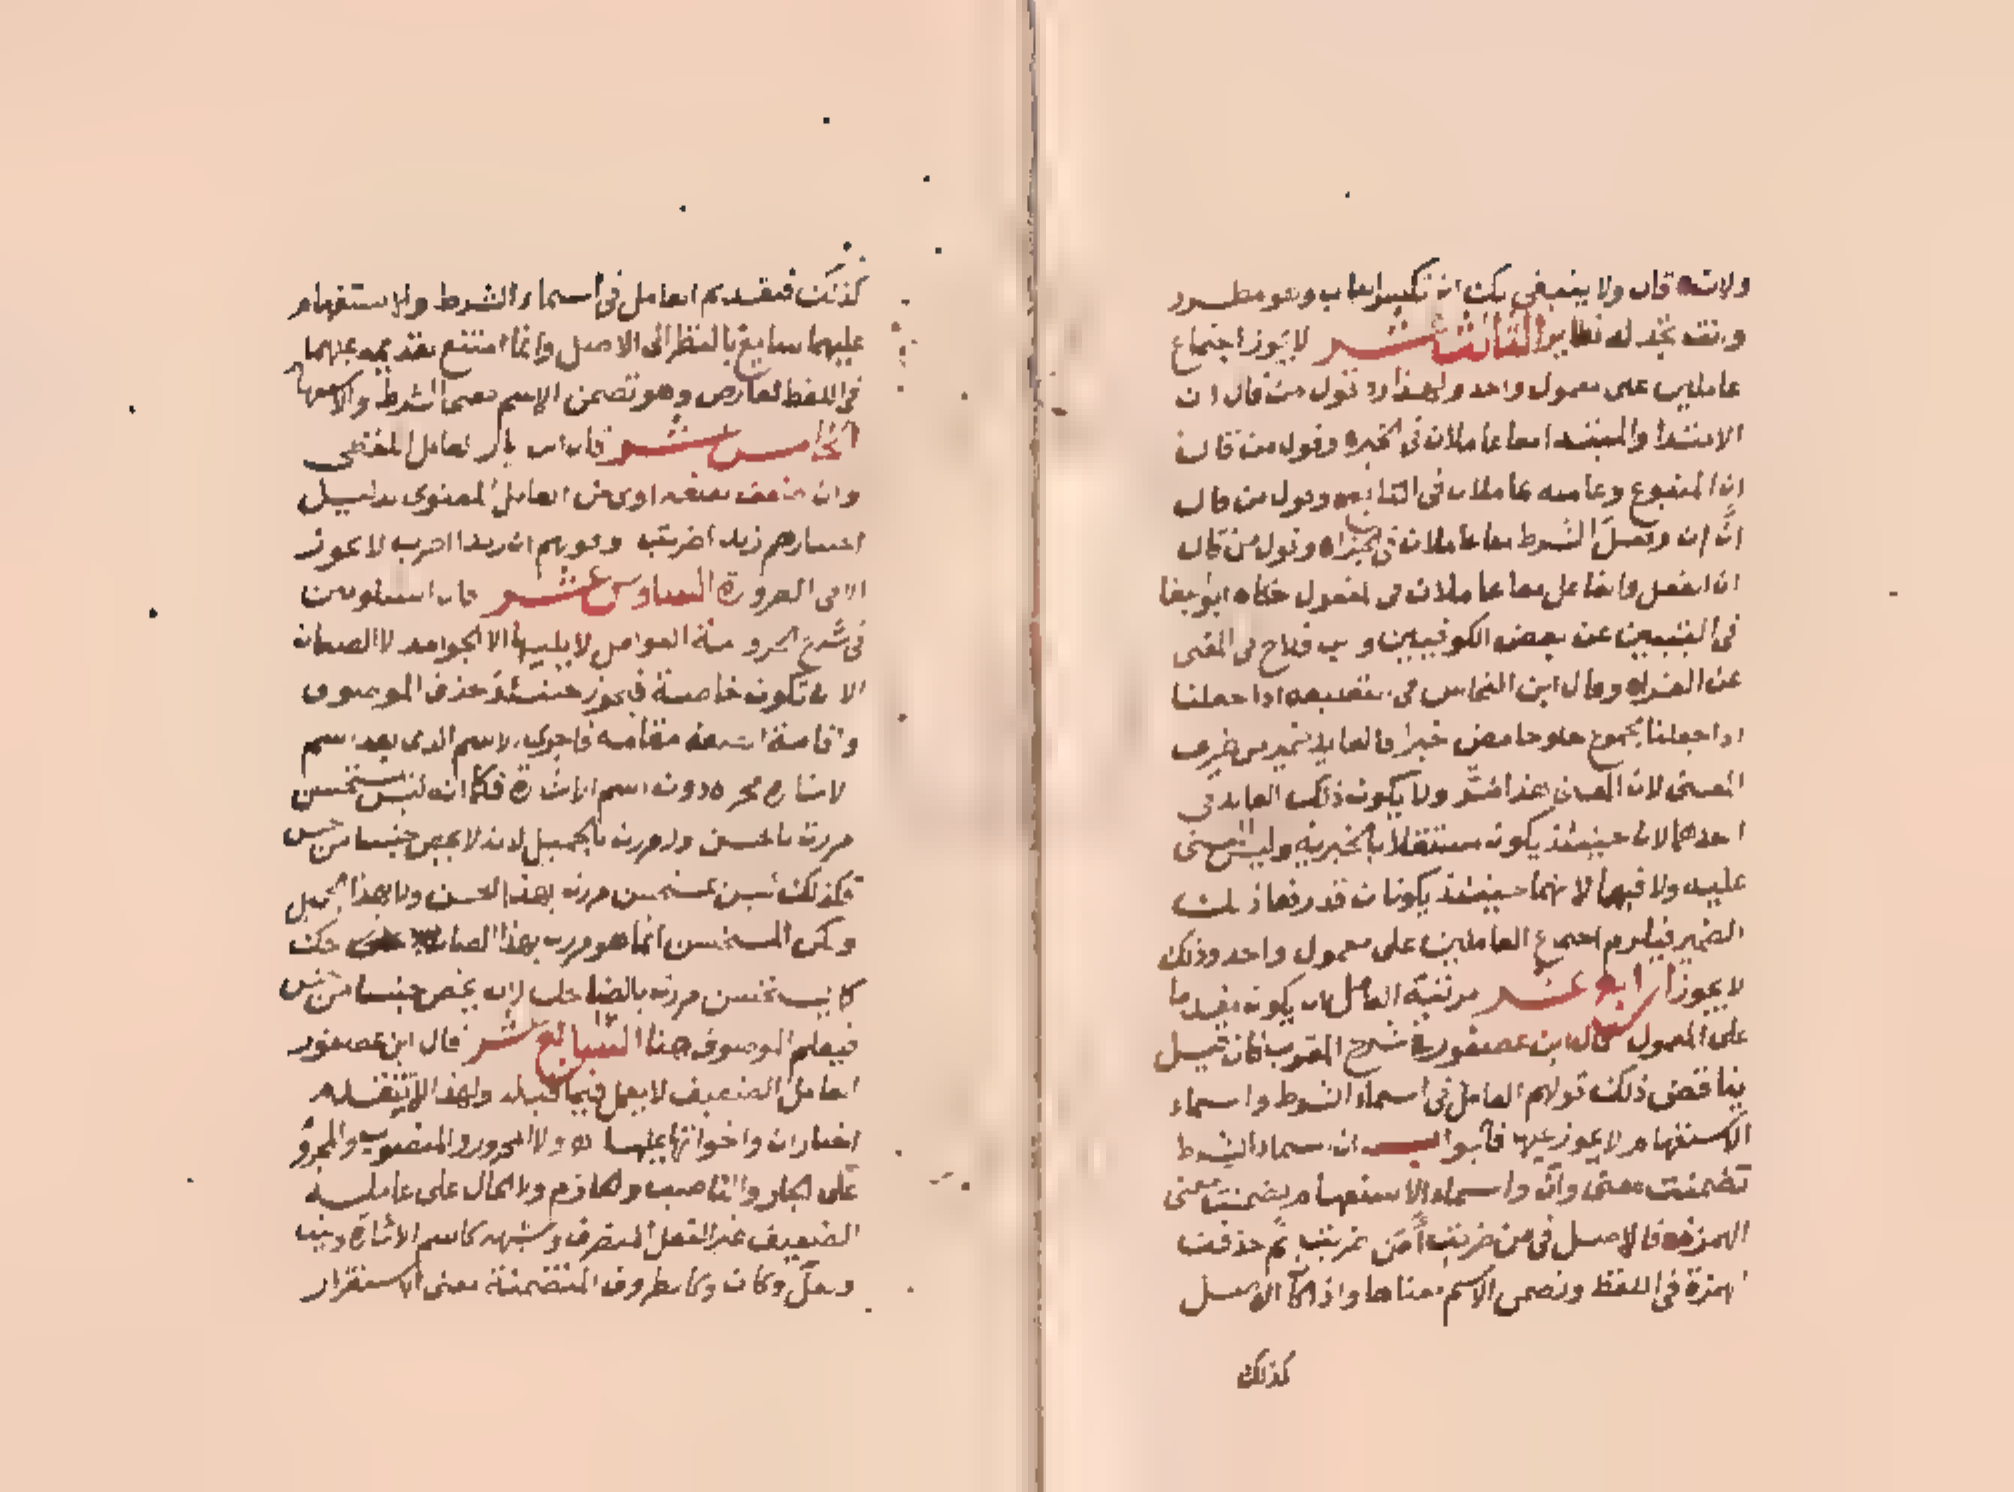 ولانه قال ولا ينبغي لك ان تكسر الباب وهو مطرد
وانت تجد له نظايرا الثالث عشر لا يجوز اجتماع
عاملين على معمول واحد ولهذا رد قول من قال ان
الابتدا والمبتدا معا عاملان في الخبر وقول من قال
ان المتبوع وعامله عاملان في التابع وقول من قال
ان ان وفعل الشرط معا عاملان في الجزاء وقول من قال
ان الفعل والفاعل معا عاملان في المفعول حكاه ابو البقا
في التبيين عن بعض الكوفيين و فلاح في المغني
عن الفراء وقال ابن النحاس في تعليقه اذا جعلنا
اذا جعلنا مجموع حلو حامض خبرا فالعايد ضمير من طريق
المعنى لان المعنى هذا مز ولا يكون ذلك العايد في
احدهما لانه حينئذ يكون مستقلا بالخبرية وليس المعنى
عليه ولا فيهما لانهما حينئذ يكونان قد رفعا ذلك
الضمير فيلزم اجتماع العاملين على معمول واحد وذلك
لا يجوز الرابع عشر مرتبة العامل ان يكون مقدما
على المعمول قاله ابن عصفور في شرح المقرب فان قيل
يناقض ذلك قولهم العامل في اسماء الشرط واسماء
الاستفهام لا يجوز فالجواب ان اسماء الشرط
تضمنت معنى وان واسماء الاستفهام تضمنت معنى
الهمزة فالاصل في من ضربت أمن ضربت ثم حذفت
الهمزة في اللفظ وتضمن الاسم معناها واذا كان الاصل
كذلك
كذلك فتقديم العامل في اسماء الشرط والاستفهام
عليهما سايغ بالنظر الى الاصل وانما امتنع تقديمه عليهما
في اللفظ لعارض وهو تضمن الاسم معنى الشرط والاستفهام
الخامس عشر قال العامل اللفظي
وان ضعف تعلقه اولى من العامل المعنوي بدليل
اختيارهم زيدا ضربت وقولهم ان زيدا ضرب لا يجوز
الا في الضرورة السادس عشر قال الشلوبين
في شرح الجزولية العوامل لا يليها الا الجوامد لا الصفات
الا ان تكون خاصة فيجوز حينئذ حذف الموصوف
واقامة الصفة مقامه فاجري الاسم الذي بعد اسم
الاشارة مجراه دون اسم الاشارة فكما انه ليس يستحسن
مررت بالحسن ولا مررت بالجميل لانه لا يخص جنسا من جنس
فكذلك ليس يستحسن مررت بهذا الحسن ولا بهذا الجميل
ولكن المستحسن انما هو مررت بهذا الضاحك
كما يستحسن مررت بالضاحك لانه يخص جنسا من جنس
فيعلم الموصوف هنا السابع عشر قال ابن عصفور
العامل الضعيف لا يعمل فيما قبله ولهذا لا يتقدم
اخبار ان واخواتها عليها ولا المجرور والمنصوب والمجزوم
على الجار والناصب والجازم ولا الحال على عامله
الضعيف غير الفعل المتصرف وشبهه كاسم الاشارة وليت
ولعل وكان وكالظروف المتضمنة معنى الاستقرار